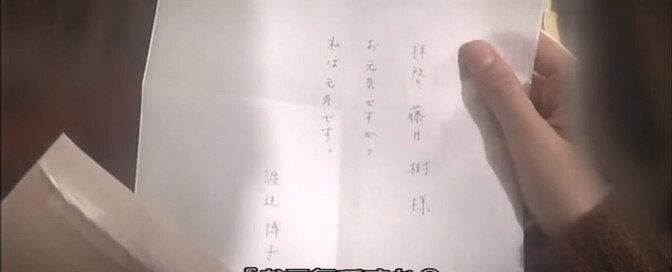 拝啓、藤井 樹 様
お元気ですか?
私は元気です。
渡辺 博子